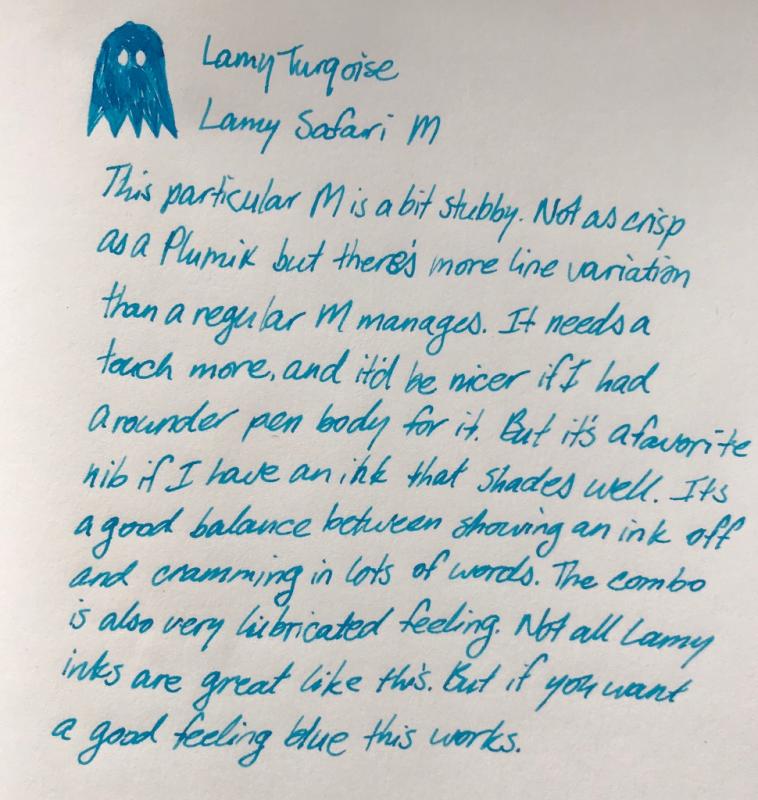 Lamy Turqoise
Lamy Safari M
This particular M is a bit stubby. Not as crisp
as a Plumix but there's more line variation
than a regular M manages. It needs a
touch more, and it'd be nicer if I had
a rounder pen body for it. But it's a favorite
nib if I have an ink that shades well. It's
a good balance between showing an ink off
and cramming in lots of words. The combo
is also very lubricated feeling. Not all Lamy
inks are great like this. But if you want
a good feeling blue this works.